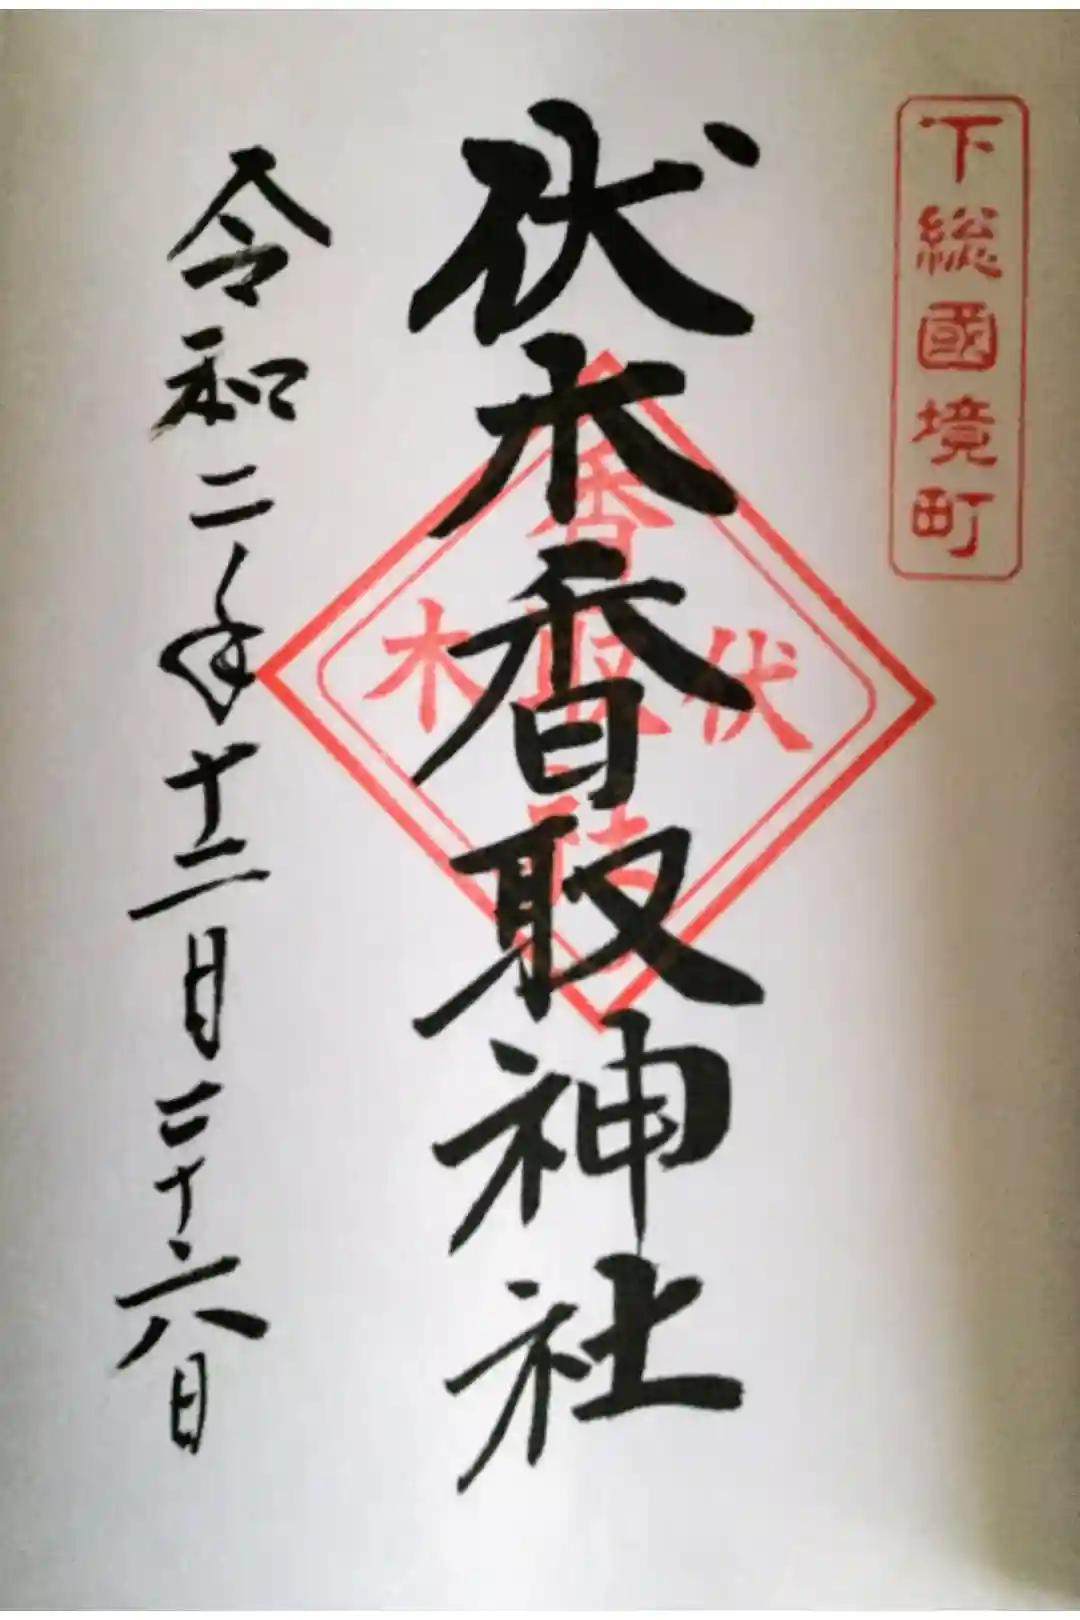 下総國境町
伏木香取神社
香取社
伏木
令和二年十二月二十六日